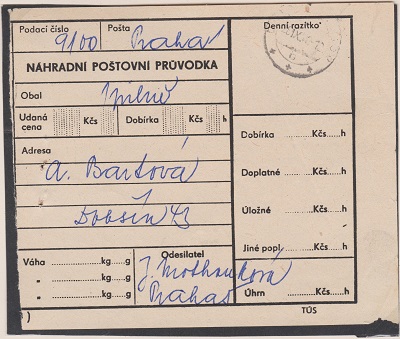 Podací číslo Pošta Denní razítko
9100 Praha
NÁHRADNÍ POŠTOVNÍ PRŮVODKA
Obal
Udaná cena Kčs Dobírka Kčs
Adresa
A. Bartová
Dobšín 43
Dobírka Kčs h
Doplatné Kčs h
Úložné Kčs h
Jiné popl. Kčs h
Úhrn Kčs h
Váha kg g
„ kg g
„ kg g
Odesilatel
J.
Praha
)
TÚS